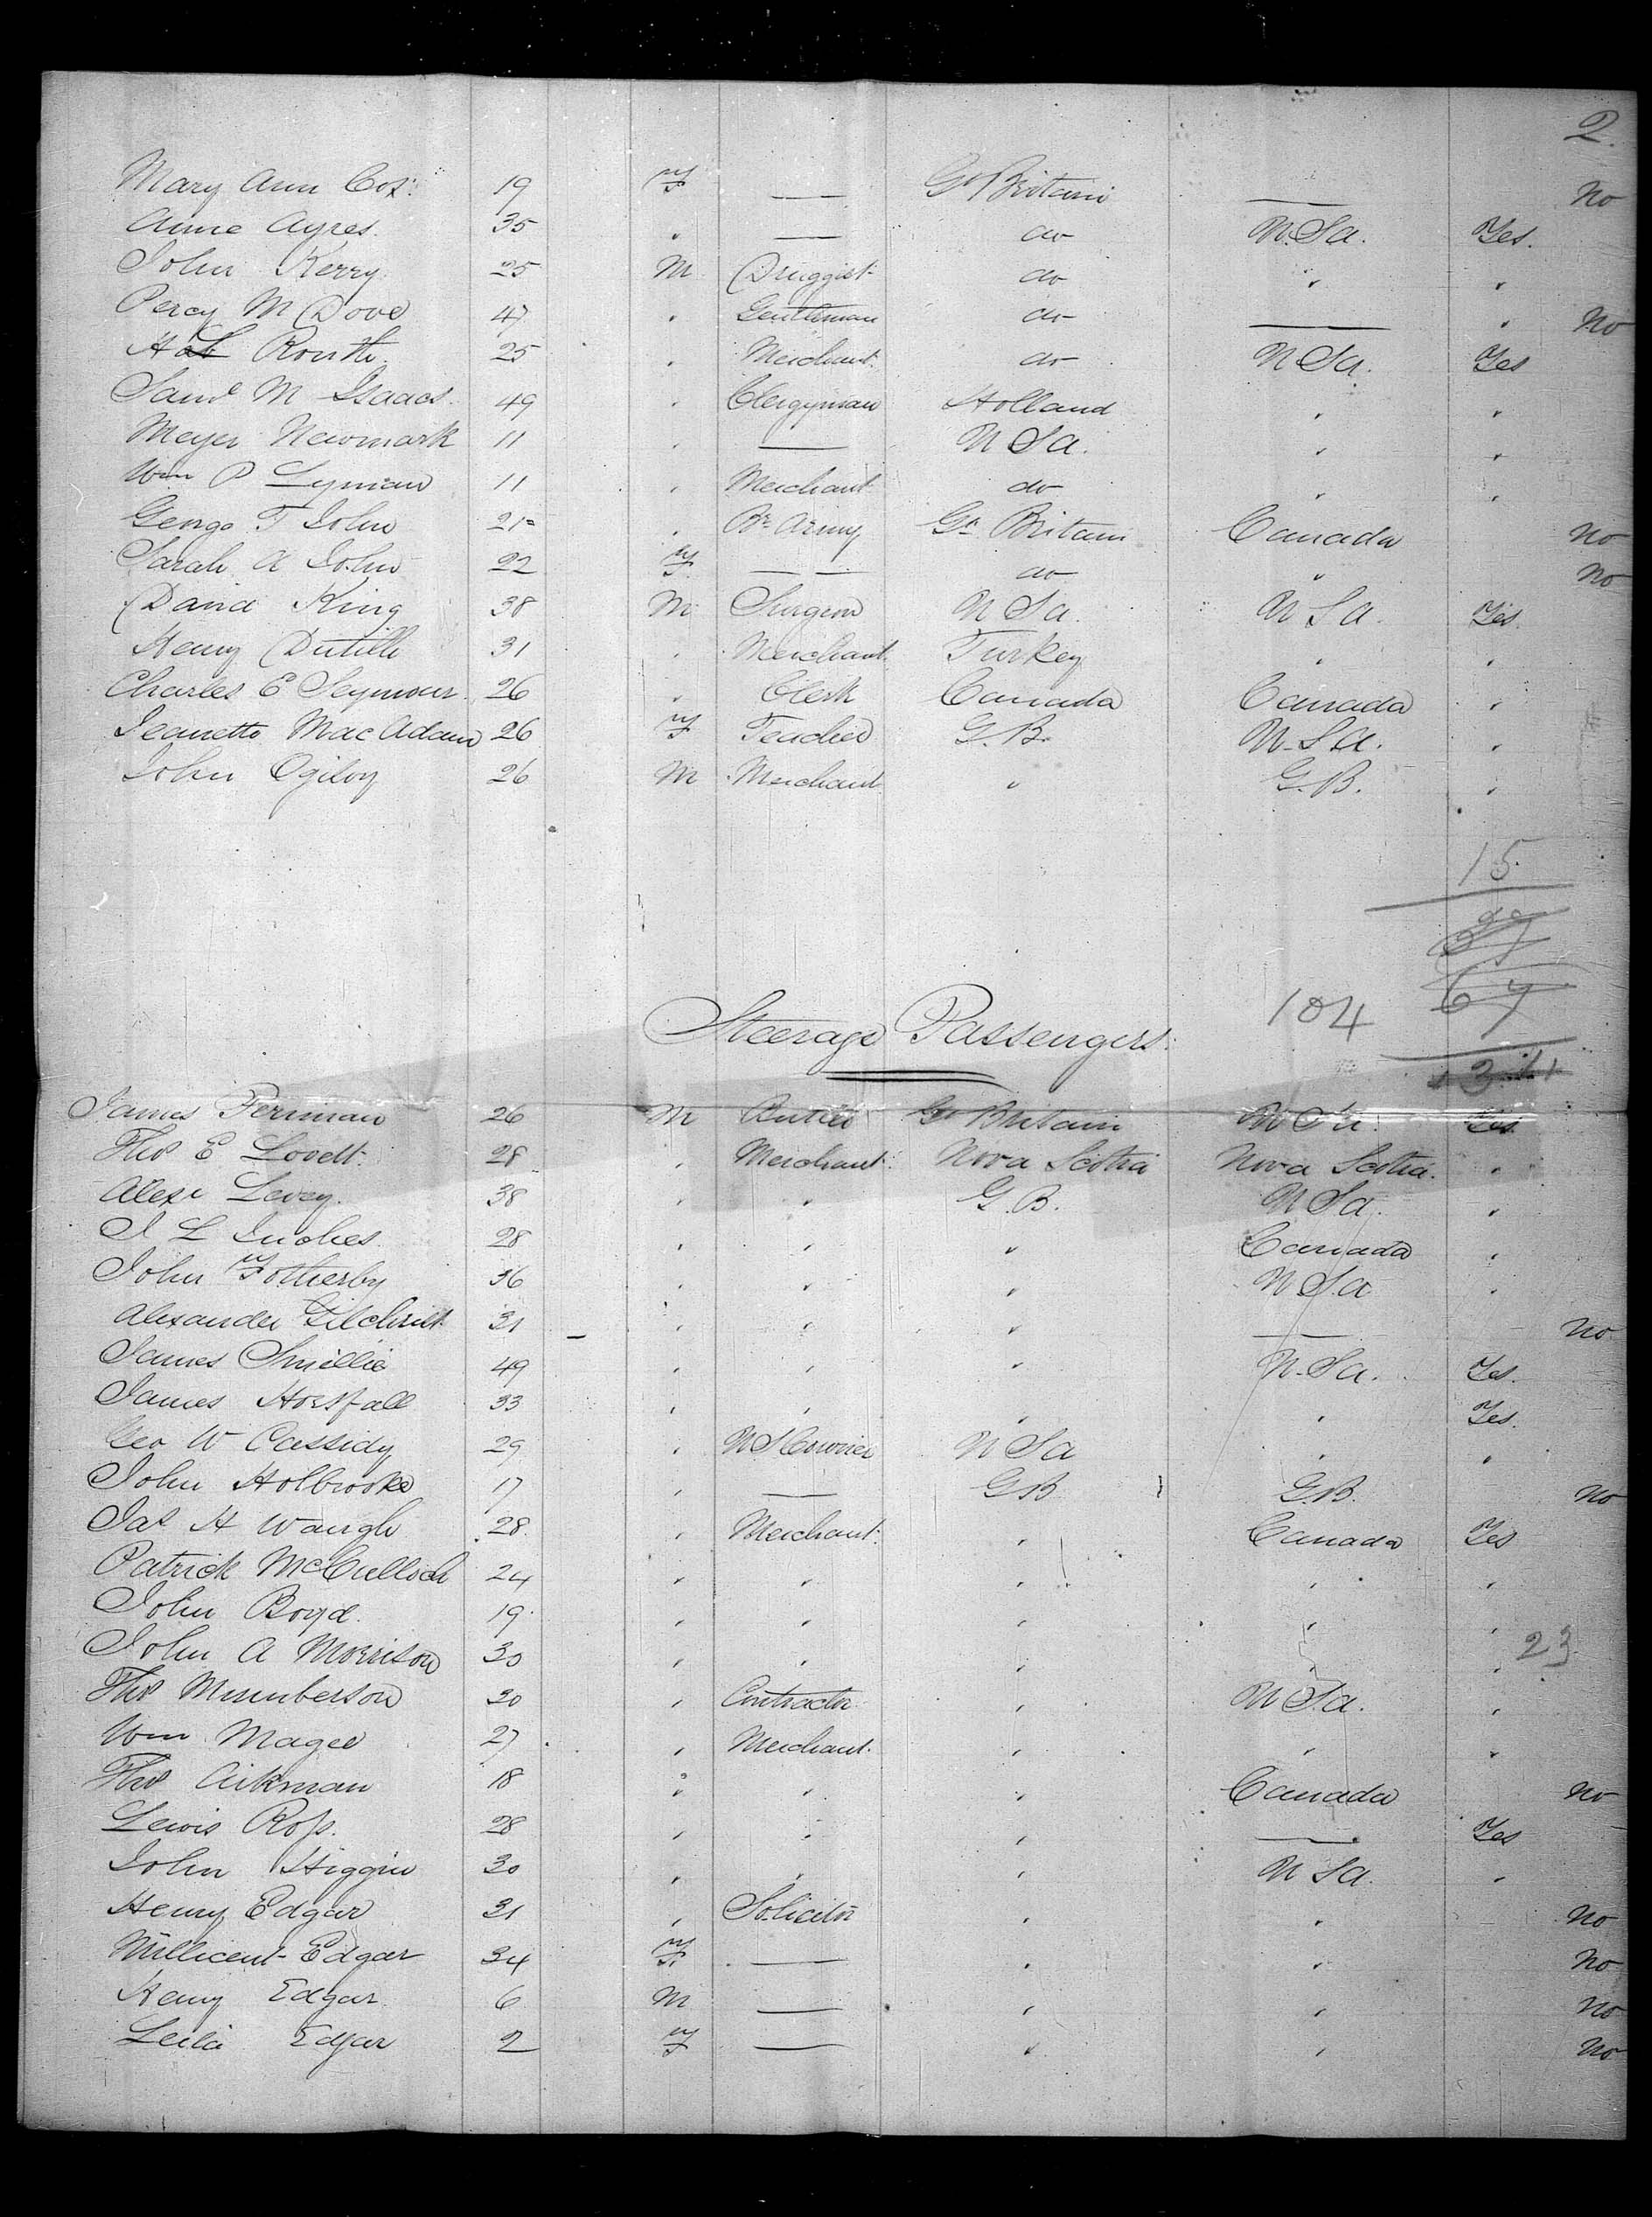 2.
Mary Ann Cox 19 F — Gt Britain — No
Anne Ayres 35 " — do U.S.a. Yes.
John Kerry 25 M Druggist do " "
Percy M Dove 47 " Gentleman do — " No
Routh 25 " Merchant do U Sa. Yes
Saml M Isaacs 49 " Clergyman Holland " "
Meyer Newmark 11 " — U Sa. " "
Wm P Lyman 11 " Merchant do " "
George T John 21 " Br Army Gt Britain Canada No
Sarah A John 22 F — — do " No
David King 38 M Surgeon U Sa. U S a. Yes.
Henry Dutilh 31 " Merchant Turkey " "
Charles E Seymour 26 " Clerk Canada Canada "
Jeanette MacAdam 26 F Teacher G.B. U.S a. "
John Ogilvy 26 M Merchant " G.B. "
15
37
67
104
Steerage Passengers.
James Perman 26 M Gt Britain Yes
Thos E Lovett 28 " Merchant Nova Scotia Nova Scotia. "
Alexr Levey. 38 " " G.B. U Sa. "
J L Inches 28 " " " Canada "
John Fotherby 36 " " " U S.a "
Alexander Gilchrist 31 " " " — No
James Smillie 49 " " " U.Sa. Yes.
James Horsfall 33 " " " " Yes.
Geo W Cassidy 29 " U S Courier U Sa " "
John Holbrooke 17 " — GB G.B. No
Jas H Waugh 28. " Merchant " Canada Yes
Patrick McCulloch 24 " " " " "
John Boyd. 19 " " " " "
John A Morrison 30 " " " " " 23
Thos 30 " Contractor " U Sa. "
Wm Magee 27 " Merchant. " " "
Thos Aikman 18 " " " Canada No
Lewis Ross. 28 " " " — Yes
John Higgin 30 " " " U Sa. "
Henry Edgar 31 " Solicitor " " No
Millicent Edgar 34 F — " " No
Henry Edgar 6 M — " " No
Leila Edgar 2 F — " " No